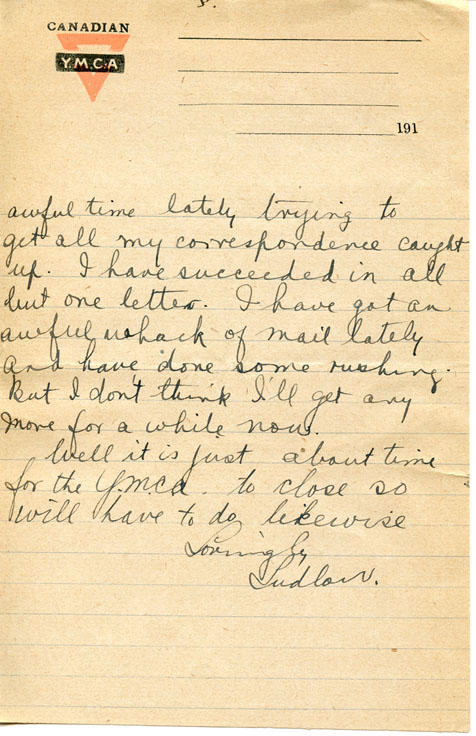 CANADIAN
Y.M.C.A
191
awful time lately trying to
get all my correspondence caught
up. I have succeeded in all
but one letter. I have got an
awful whack of mail lately
and have done some rushing.
But I don't think I'll get any
more for a while now.
Well it is just about time
for the Y.M.C.A. to close so
will have to do likewise
Lovingly
Ludlow.